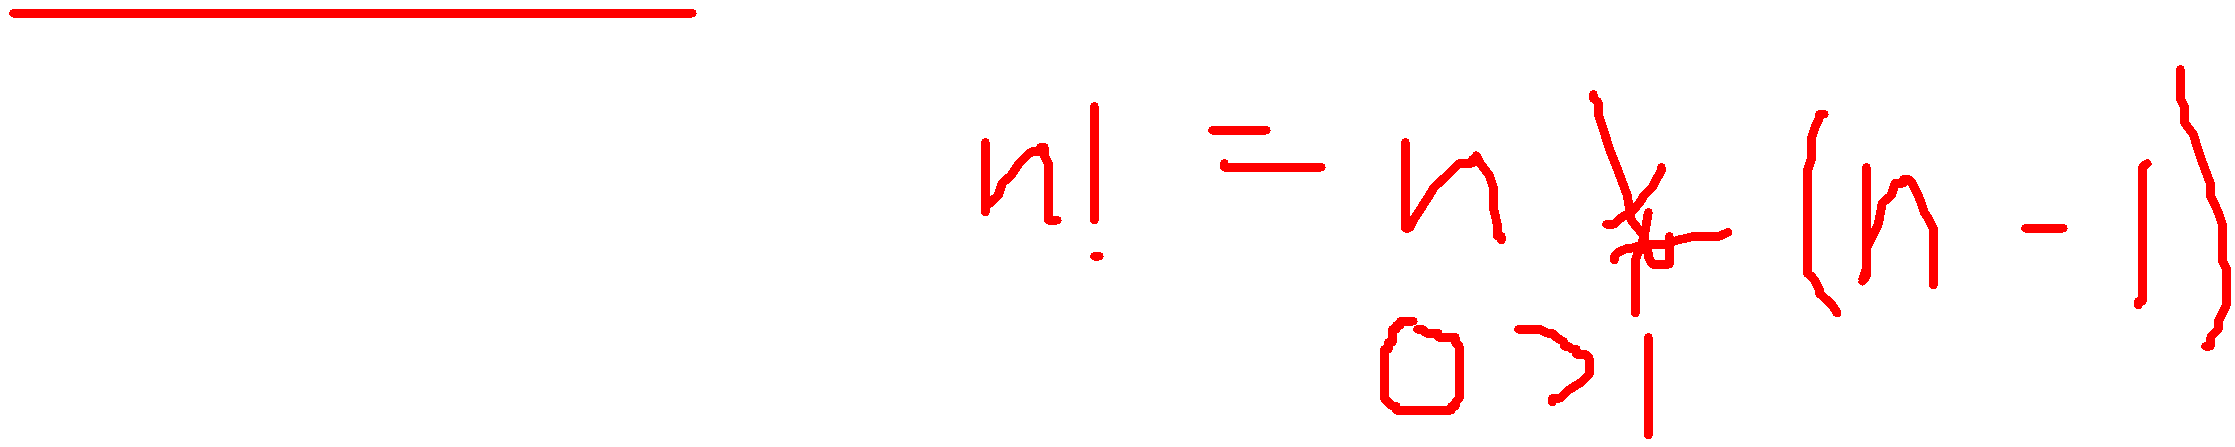 n! = n * (n - 1)
0 > 1